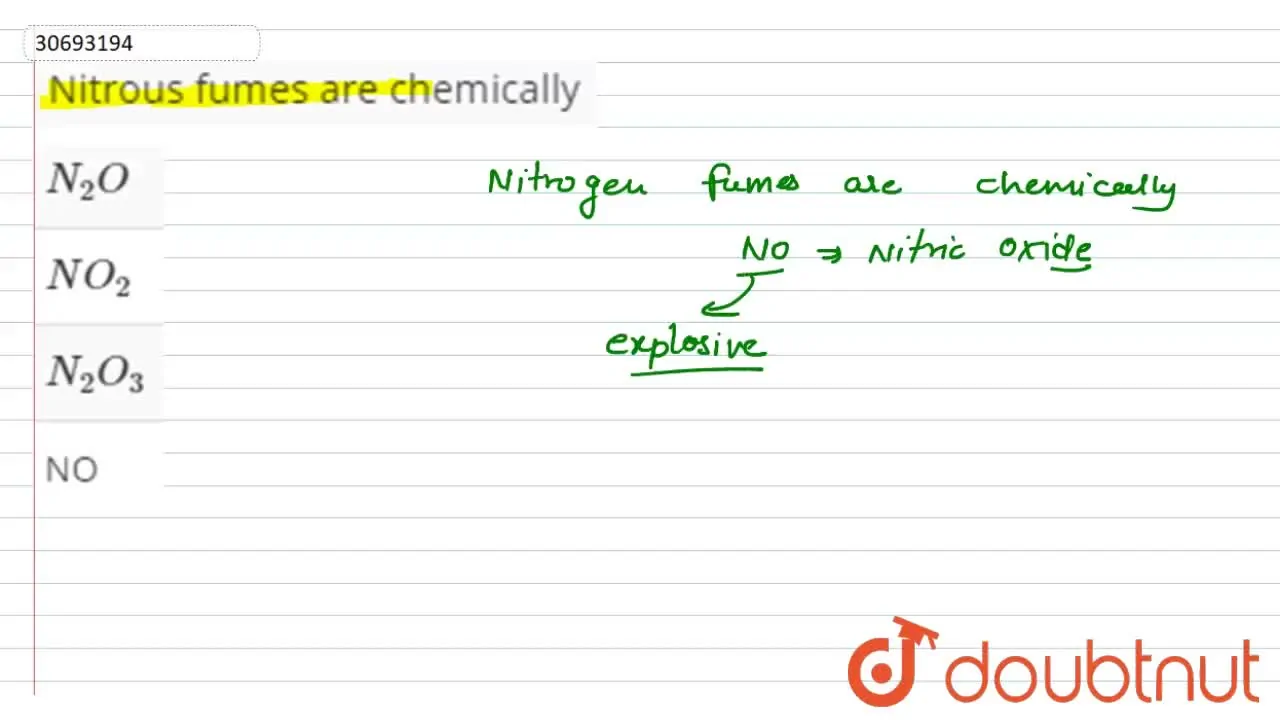 30693194
Nitrous fumes are chemically
N₂O
NO₂
N₂O₃
NO
Nitrogen fumes are chemically
NO ⇒ Nitric oxide
explosive
doubtnut